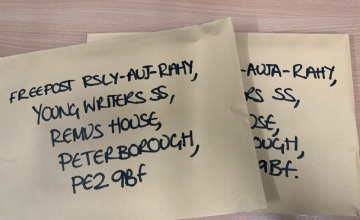 FREEPOST RSLY-AUJ-RAHY,
YOUNG WRITERS SS,
REMUS HOUSE,
PETERBOROUGH,
PE2 9BF
-AUJA-RAHY,
RS SS,
OUSE,
OUGH,
9BF.